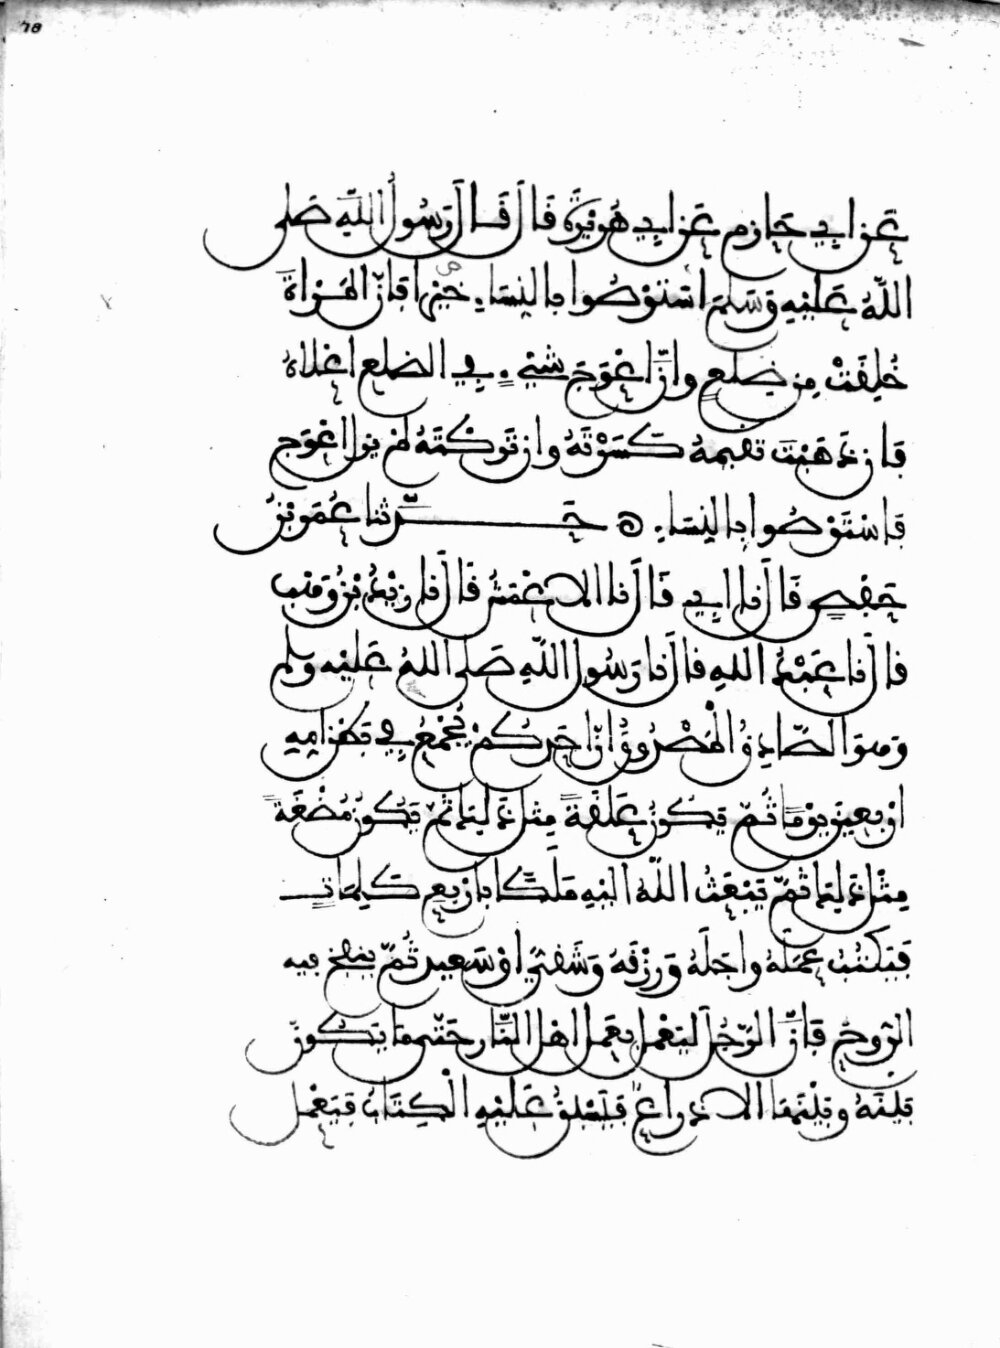 78
عَن ابي حَازِم عَن ابِي هُرَيْرَةَ قَالَ قَالَ رَسُولُ اللَّهِ صَلى
اللَّهُ عَلَيْهِ وَسَلمَ اسْتَوْصُوا بِالنِّسَاءِ خَيْرا فَإنَّ المَرْأةَ
خُلِقَتْ مِن ضِلَعٍ وانَّ اعْوَجَ شَيْءٍ فِي الضلع اعْلاهُ
فَإن ذَهَبْتَ تقيمهُ كَسَرْتَهُ وان تَرَكْتَهُ لمْ يزل اعْوَج
فَاسْتَوْصُوا بِالنِّسَاءِ ه حَدَّثنا عُمَرُ بْنُ
حَفْصٍ قَالَ نا ابِي قَالَ نا الاعْمَشُ قَالَ نا زيْدُ بْنُ وَهْب
قالَ نا عَبْدُ اللهِ قالَ نا رَسُول اللَّهِ صَلى اللهُ عَليْه وسلم
وَهوَ الصَّادِقُ الْمَصْدُوقُ انَّ احَدكُمْ يُجْمَعُ فِي بَطْنِ امِهِ
ارْبعِينَ يَوْمًا ثُمَّ يَكُونُ عَلَقَةً مِثل ذَلِكَ ثُمَّ يَكُونُ مُضْغَةً
مِثْل ذَلِكَ ثُمَّ يَبْعَثُ اللَّهُ اليْهِ مَلَكًا بِارْبَعِ كَلِمَاتٍ
فَيَكْتُبُ عَمَلَهُ واجَلَهُ وَرِزْقَهُ وَشَقِيٌّ اوْ سَعِيد ثُمَّ ينفخ فِيه
الرُّوحُ فَإنَّ الرَّجُلَ لَيَعْمل بِعَمَلِ اهْل النَّارِ حَتَّى مَا يَكُونُ
بَيْنَهُ وبَيْنَهَا الا ذِراعٌ فَيَسْبِقُ عَلَيْهِ الْكِتَابُ فَيَعْمل